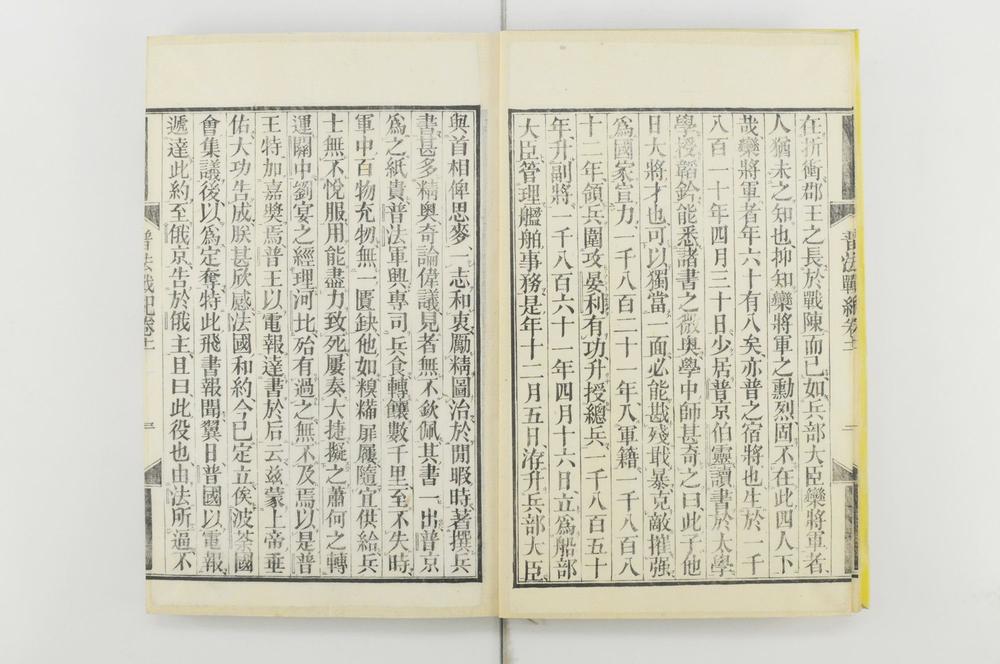 在折衝郡王之長於戰陳而已如兵部大臣欒將軍者
人猶未之知也抑知欒將軍之勳烈固不在此四人下
哉欒將軍者年六十有八矣亦普之宿將也生於一千
八百一十年四月三十日少居普京伯靈讀書於太學
學授韜鈐能悉諸書之微奧學中師甚奇之曰此子他
日大將才也可以獨當一面必能戡殘戢暴克敵摧强
為國家宣力一千八百二十一年八軍籍一千八百八
十二年領兵圍攻晏利有功升授總兵一千八百五十
年升副將一千八百六十一年四月十六日立為船部
大臣管理艦舶事務是年十二月五日洊升兵部大臣
普法戰紀卷十二
與首相俾思麥一志和衷勵精圖治於閒暇時著撰兵
書甚多精奧奇論偉議見者無不欽佩其書一出普京
為之紙貴普法軍興專司兵食轉饟數千里至不失時
軍中百物充牣無一匱缺他如糗糒扉屨隨宜供給兵
士無不悅服用能盡力致死屢奏大捷擬之蕭何之轉
運關中劉宴之經理河北殆有過之無不及焉以是普
王特加嘉獎焉普王以電報達書於后云茲蒙上帝垂
佑大功告成朕甚欣慼法國和約今已定立俟波茶國
會集議後以為定奪特此飛書報聞翼日普國以電報
遞達此約至俄京告於俄主且曰此役也由法所逼不
普法戰紀卷十二